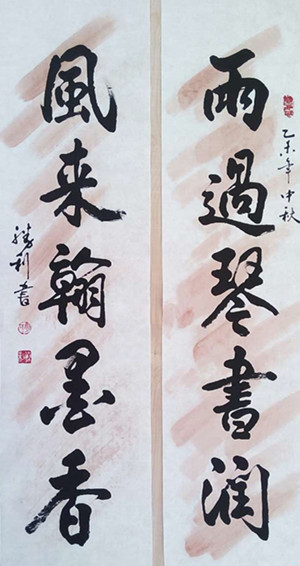 雨過琴書潤
乙未年中秋
風来翰墨香
勝利書